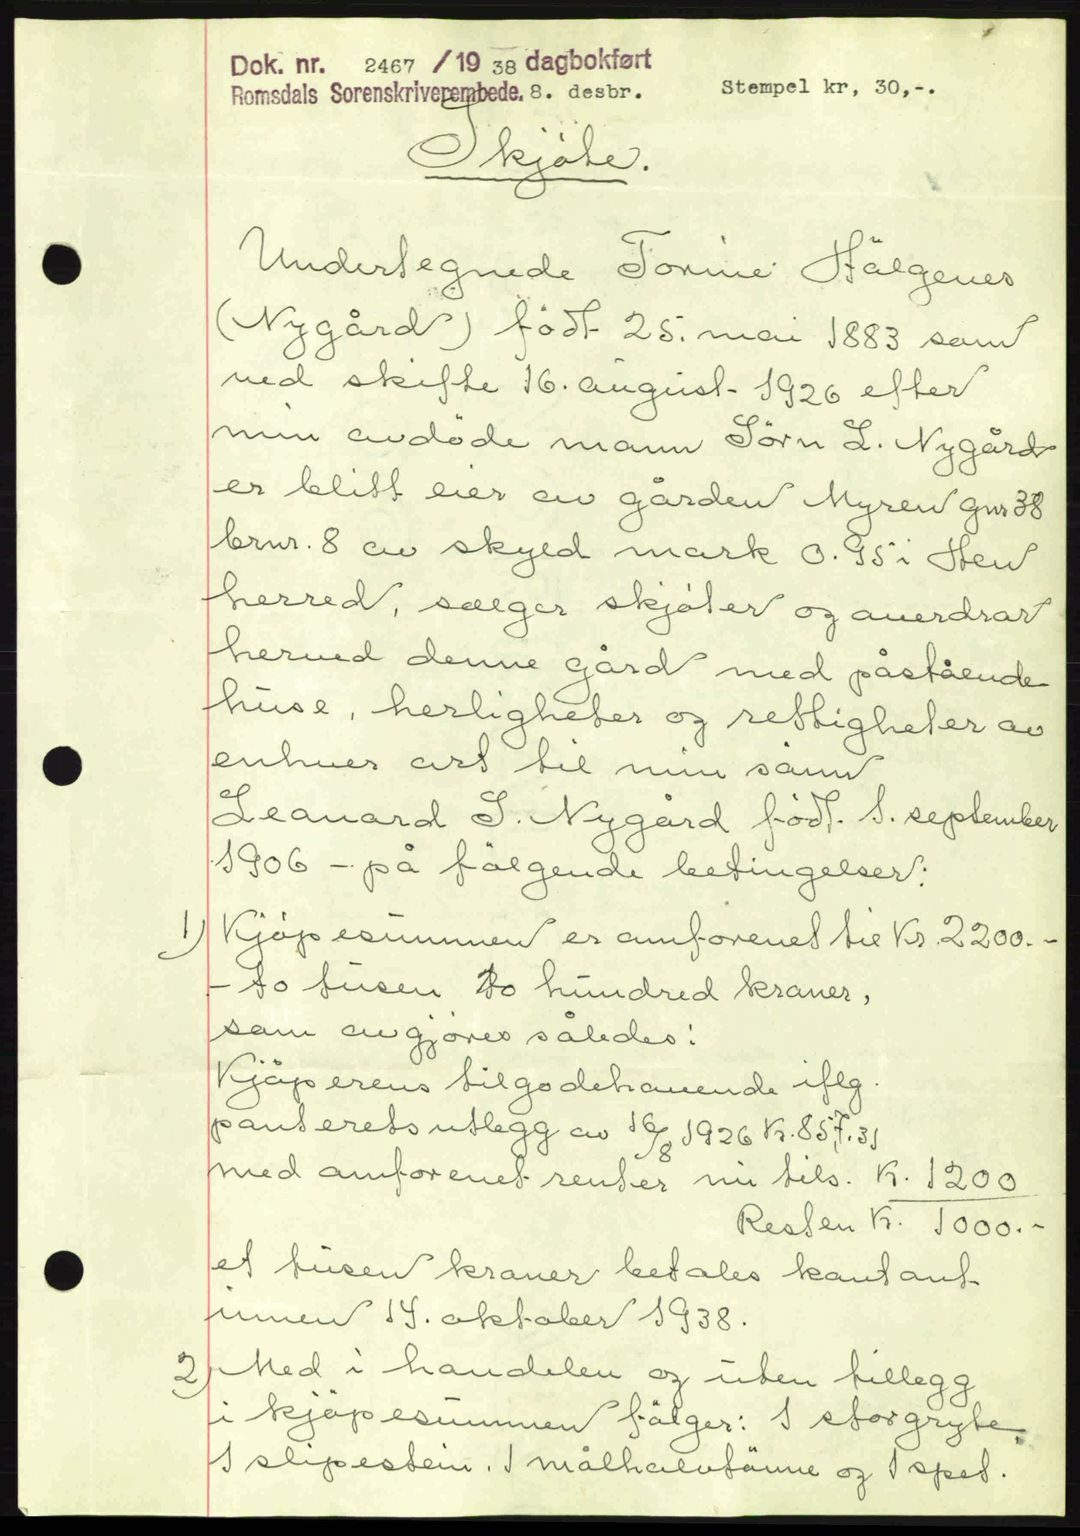 Dok. nr. 2467 /19 38 dagbokført
Romsdals Sorenskriverembede. 8. desbr. Stempel kr, 30,-.
Skjöte.
Undertegnede Torine Hälgenes
(Nygård) född 25. mai 1883 som
ved skifte 16. august 1926 efter
min avdöde mann Sörn L. Nygård
er blitt eier av gården Myren gnr 38
brnr. 8 av skyld mark 0.95 i Hen
herred, sælger skjöter og overdrar
herved denne gård med påstående
huse, herligheter og rettigheter av
enhver art til min sönn
Leonard S. Nygård född 1. september
1906 – på fölgende betingelser:
1) Kjöpesummen er omforenet til Kr 2200.-
- to tusen to hundred kroner,
som avgjöres således:
Kjöperens tilgodehavende iflg.
panterets utlegg av 16/8 1926 Kr. 857.31
med omforenet renter nu tils. Kr. 1200
Resten Kr. 1000.-
et tusen kroner betales kontant
innen 14. oktober 1938.
2) Med i handelen og uten tillegg
i kjöpesummen fölger: 1 storgryte,
1 slipestein. 1 målhalvtönne og 1 spet.